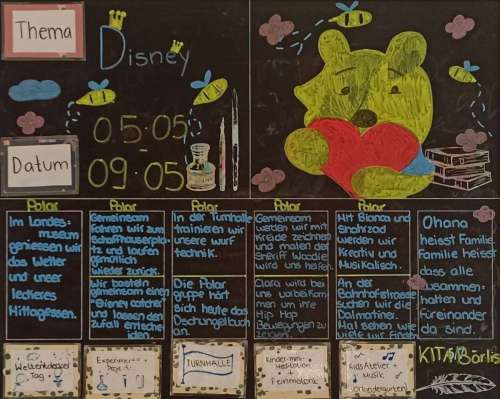 Thema
Disney
Datum
05.05
09.05
Polar
Polar
Polar
Polar
Polar
Im Landes=
museum
geniessen wir
das Wetter
und unser
leckeres
Mittagessen.
Gemeinsam
fahren wir zum
Schaffhauserpla-
tz und laufen
gemütlich
wieder zurück.
Wir basteln
gemeinsam einen
Disney catcher
und lassen der
Zufall entsche-
iden.
In der Turnhalle
trainieren wir
unsere wurf
technik.
Die Polar
gruppe hört
sich heute das
Dschungelbuch
an.
Gemeinsam
werden wir mit
Kreide zeichnen
und malen der
Sheriff Woodie
wird uns helfen.
Clara wird bei
uns vorbeikom-
men um ihre
Hip Hop
Bewegungen zu
zeigen.
Mit Bianca und
Shahrzad
werden wir
Kreativ und
Musikalisch.
An der
Bahnhofstrasse
suchen wir die
Dalmatiner.
Mal sehen wie
viele wir finden
Ohana
heisst Familie
Familie heisst
dass alle
zusammen=
halten und
füreinander
da sind.
Weltentdecker
Tag
Experimentier
Projekt
TURNHALLE
Kinder-
+
Feinmotorik
Kids Atelier
+
Musik
KITA Börlis